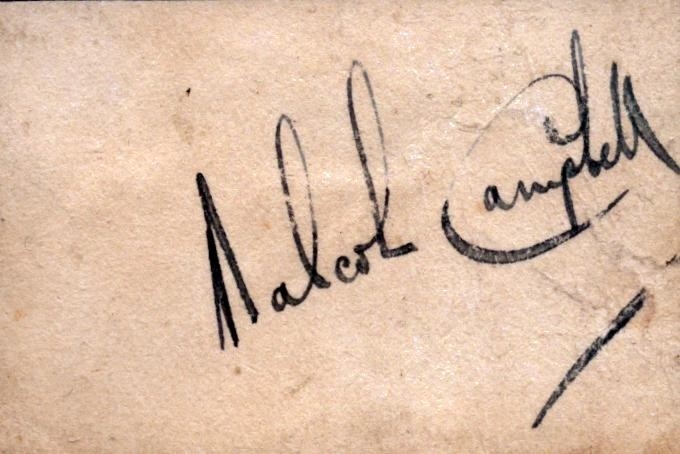 Malcolm Campbell